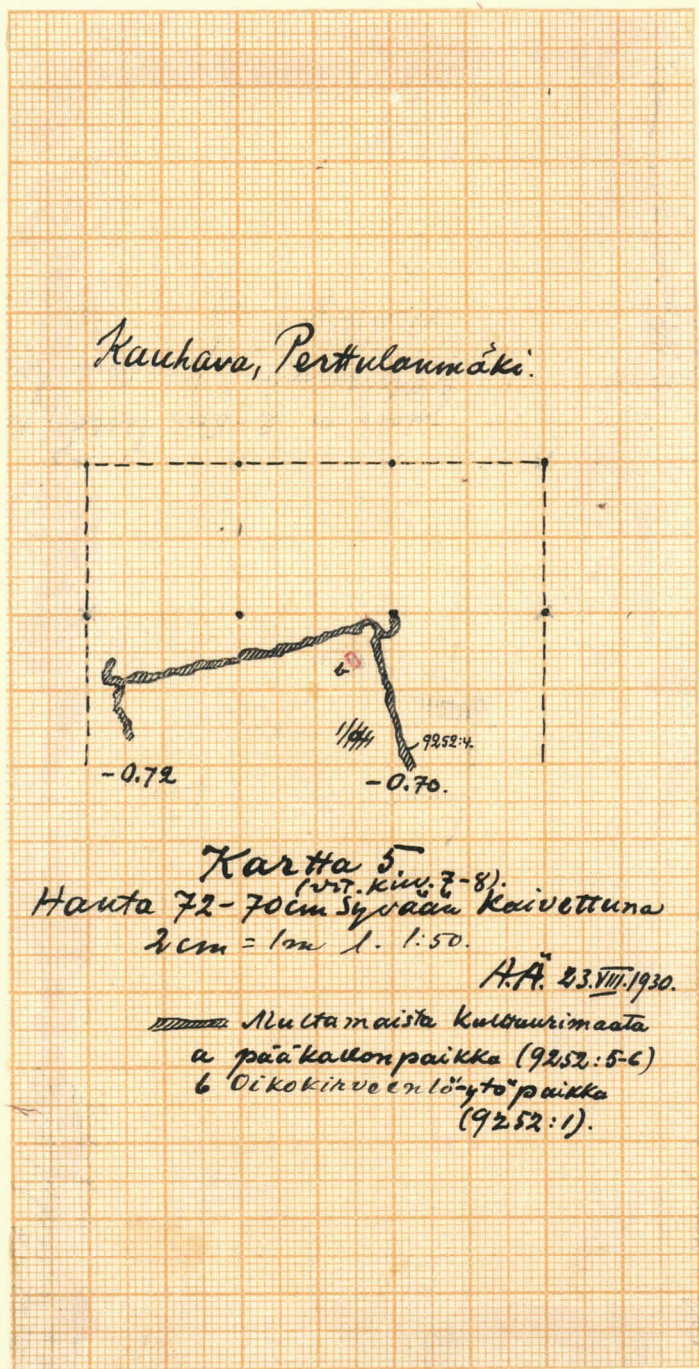 Kauhava, Perttulanmäki.
b
9252:4.
-0.72
-0.70.
Kartta 5
(vrt. kuv. 7-8).
Hauta 72-70cm Syvään Kaivettuna
2cm = 1m l. 1:50.
A.Ä. 23.VIII.1930.
Multamaista Kulttuurimaata
a pääkallonpaikka (9252:5-6)
b Oikokirveenlöytöpaikka
(9252:1).